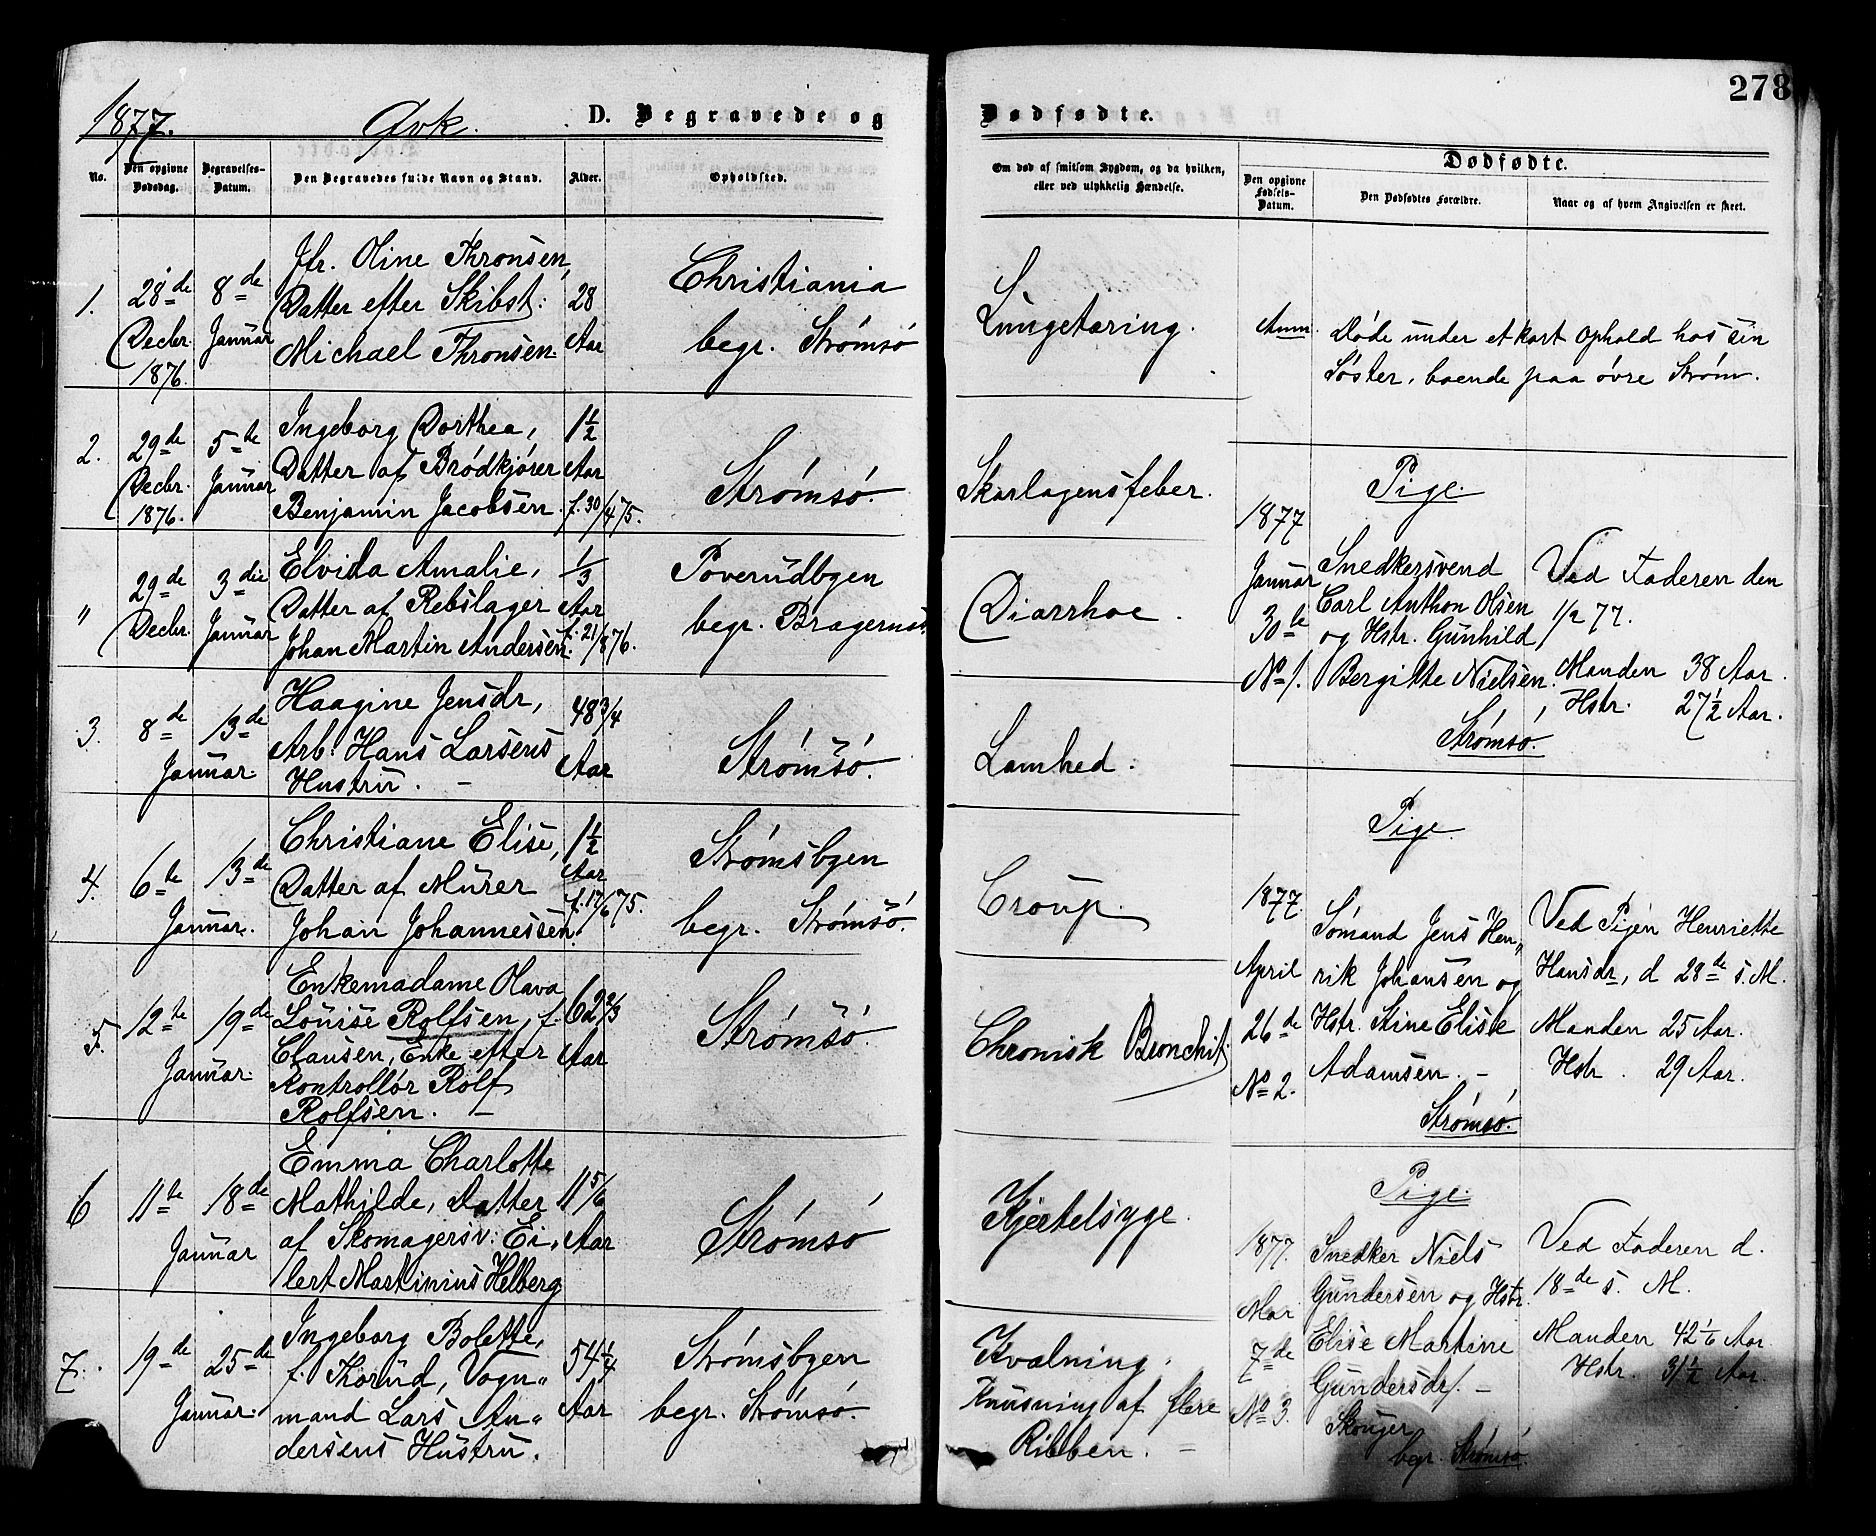 278
1877.
Qvk.
D. Begravede og
Dødfødte.
No.
Den opgivne Dødsdag.
Begravelses-Datum.
Den Begravedes fulde Navn og Stand.
Alder.
Opholdsted.
Om død af smitsom Sygdom, og da hvilken,
eller ved ulykkelig Hændelse.
Dødfødte.
Den opgivne Fødsels-Datum.
Den Dødfødtes Forældre.
Naar og af hvem Angivelsen er skeet.
1.
28de
Decbr.
1876.
8de
Januar
Jfr. Oline Thronsen,
Datter efter Skibst:
Michael Thronsen.
28
Aar
Christiania
begr. Strømsø
Lungetæring.
Anm.
Døde under et kort Ophold hos sin
Søster, boende paa øvre Strøm.
2.
29de
Decbr.
1876.
5te
Januar
Ingeborg Dorthea,
Datter af Brødkjører
Benjamin Jacobsen.
1½
Aar
f. 30/4 75.
Strømsø.
Skarlagensfeber.
"
29de
Decbr.
3die
Januar
Elvida Amalie,
Datter af Rebslager
Johan Martin Andersen.
1/3
Aar
f. 21/8 76.
Poverudbyen
begr. Bragernæs
Diarrhoe.
3.
8de
13de
Januar
Haagine Jensdr,
Arb. Hans Larsens
Hustru. –
48 3/4
Aar
Strømsø.
Lamhed.
4.
6te
13de
Januar.
Christiane Elise,
Datter af Murer
Johan Johannessen.
1½
Aar
f. 17/6 75.
Strømsbyen
begr. Strømsø.
Croup.
5.
12te
19de
Januar.
Enkemadame Olava
Louise Rolfsen, f.
Clausen, Enke efter
Kontrollør Rolf
Rolfsen. –
62 2/3
Aar
Strømsø.
Chronisk Bronchit.
6
11te
18de
Januar
Emma Charlotte
Mathilde, Datter
af Skomagersv: Ei,,
lert Martinius Helberg
11 5/6
Aar
Strømsø
Kjertelsyge.
7.
19de
25de
Januar.
Ingeborg Bolette,
f. Korud, Vogn"
mand Lars An"
dersens Hustru.
54 1/4
Aar
Strømsbyen
begr. Strømsø.
Kvælning.
Knusning af flere
Ribben. –
Pige.
1877
Januar
30te
No 1.
Snedkersvend
Carl Anthon Olsen
og Hstr. Gunhild
Bergitte Nielsen.
Strømsø.
Ved Faderen den
1/2 77.
Manden 38 Aar.
Hstr. 27½ Aar.
Pige
1877
April
26de
No 2.
Sømand Jens Hen,,
rik Johansen og
Hstr. Stine Elise
Adamsen. –
Strømsø.
Ved Pigen Henriette
Hansdr, d 28de s. M.
Manden 25 Aar.
Hstr. 29 Aar.
Pige.
1877.
Mai
7de
No 3.
Snedker Niels
Gundersen og Hstr.
Elise Martine
Gundersdr. –
Skouger
begr. Strømsø.
Ved Faderen d.
18de s. M.
Manden 42 1/6 Aar.
Hstr. 31½ Aar.